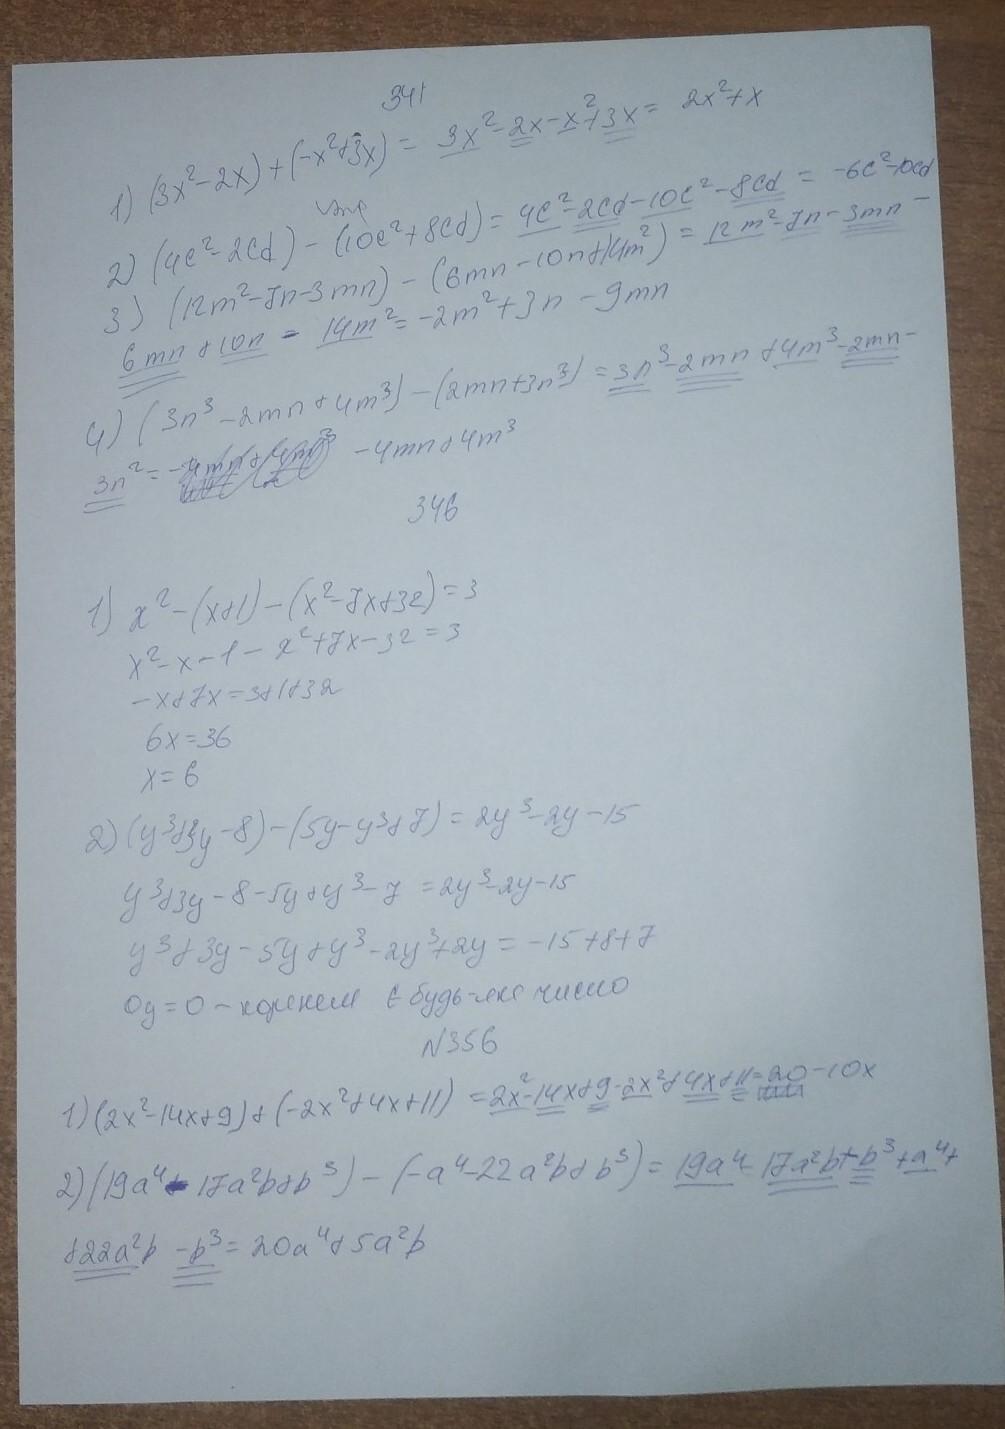 341
1) (3x²-2x)+(-x²+3x) = 3x²-2x-x²+3x = 2x²+x
2) (4c²-2cd) - (10c²+8cd) = 4c²-2cd-10c²-8cd = -6c²-10cd
3) (12m²-7n-3mn) - (6mn-10n+14m²) = 12m²-7n-3mn-
6mn+10n - 14m² = -2m²+3n-9mn
4) (3n³-2mn+4m³)-(2mn+3n³) = 3n³-2mn+4m³-2mn-
3n² = -4mn+4m³
346
1) x²-(x+1)-(x²-7x+32)=3
x²-x-1-x²+7x-32=3
-x+7x=3+1+32
6x=36
x=6
2) (y³+3y-8)-(5y-y³+7)=2y³-2y-15
y³+3y-8-5y+y³-7=2y³-2y-15
y³+3y-5y+y³-2y³+2y=-15+8+7
0y=0 - коренем є будь-яке число
N356
1) (2x²-14x+9)+(-2x²+4x+11) = 2x²-14x+9-2x²+4x+11=20-10x
2) (19a⁴-17a²b+b³)-(-a⁴-22a²b+b³)=19a⁴-17a²b+b³+a⁴+
+22a²b-b³=20a⁴+5a²b